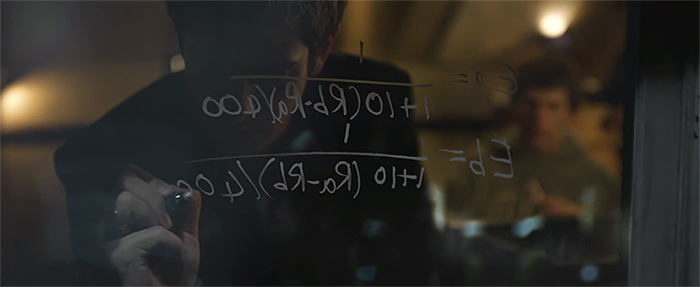 Ea = 1
1+10(Rb-Ra)/400
Eb = 1
1+10(Ra-Rb)/400